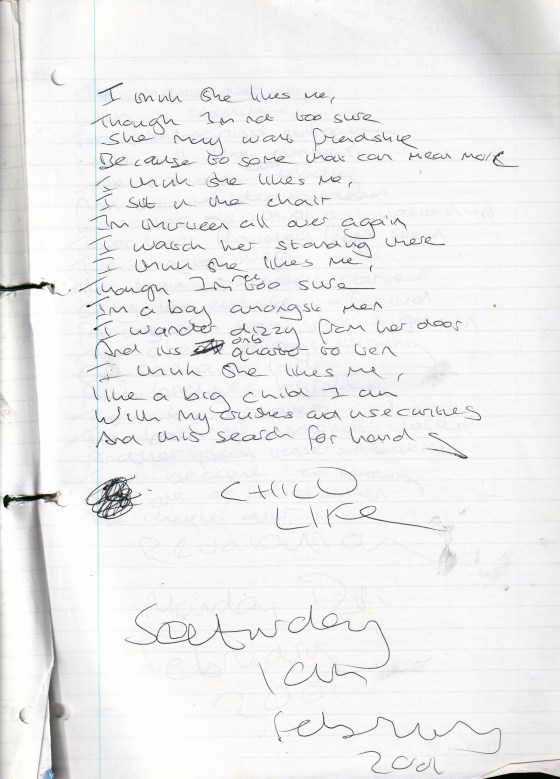 I think she likes me,
Though I'm not too sure
She may want friendship
Because to some that can mean more
I think she likes me,
I sit in the chair
I'm thirteen all over again
I watch her standing there
I think she likes me,
Though I'm not too sure
I'm a boy amongst men
I wander dizzy from her door
And its only quarter to ten
I think she likes me,
like a big child I am
With my crushes and insecurities
And this search for hand
CHILD
LIKE
Saturday
February
2001